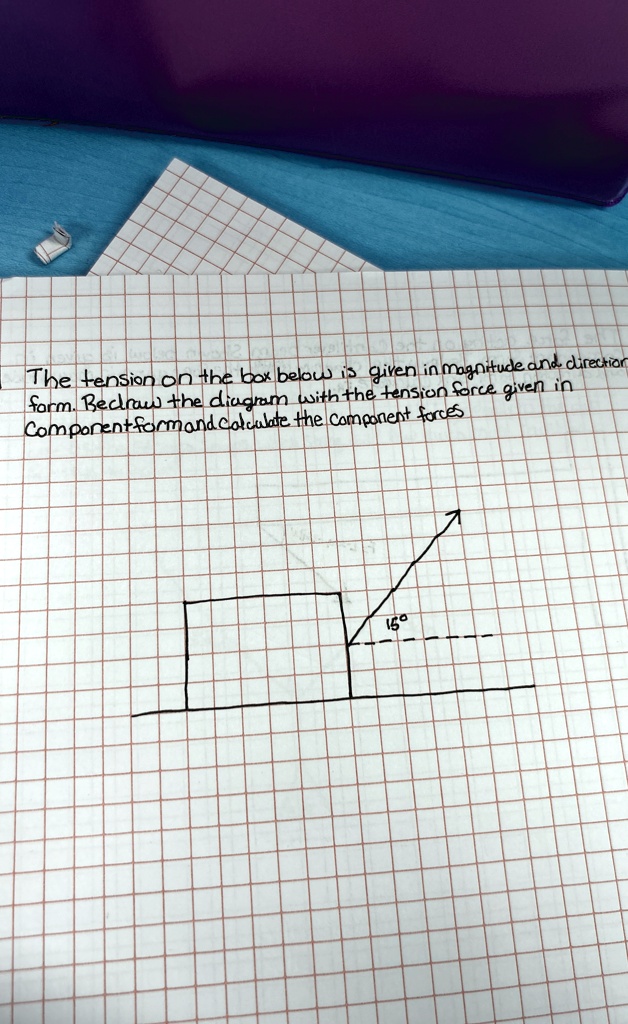 The tension on the box below is given in magnitude and direction
form. Redraw the diagram with the tension force given in
Component form and Calculate the component forces
15°